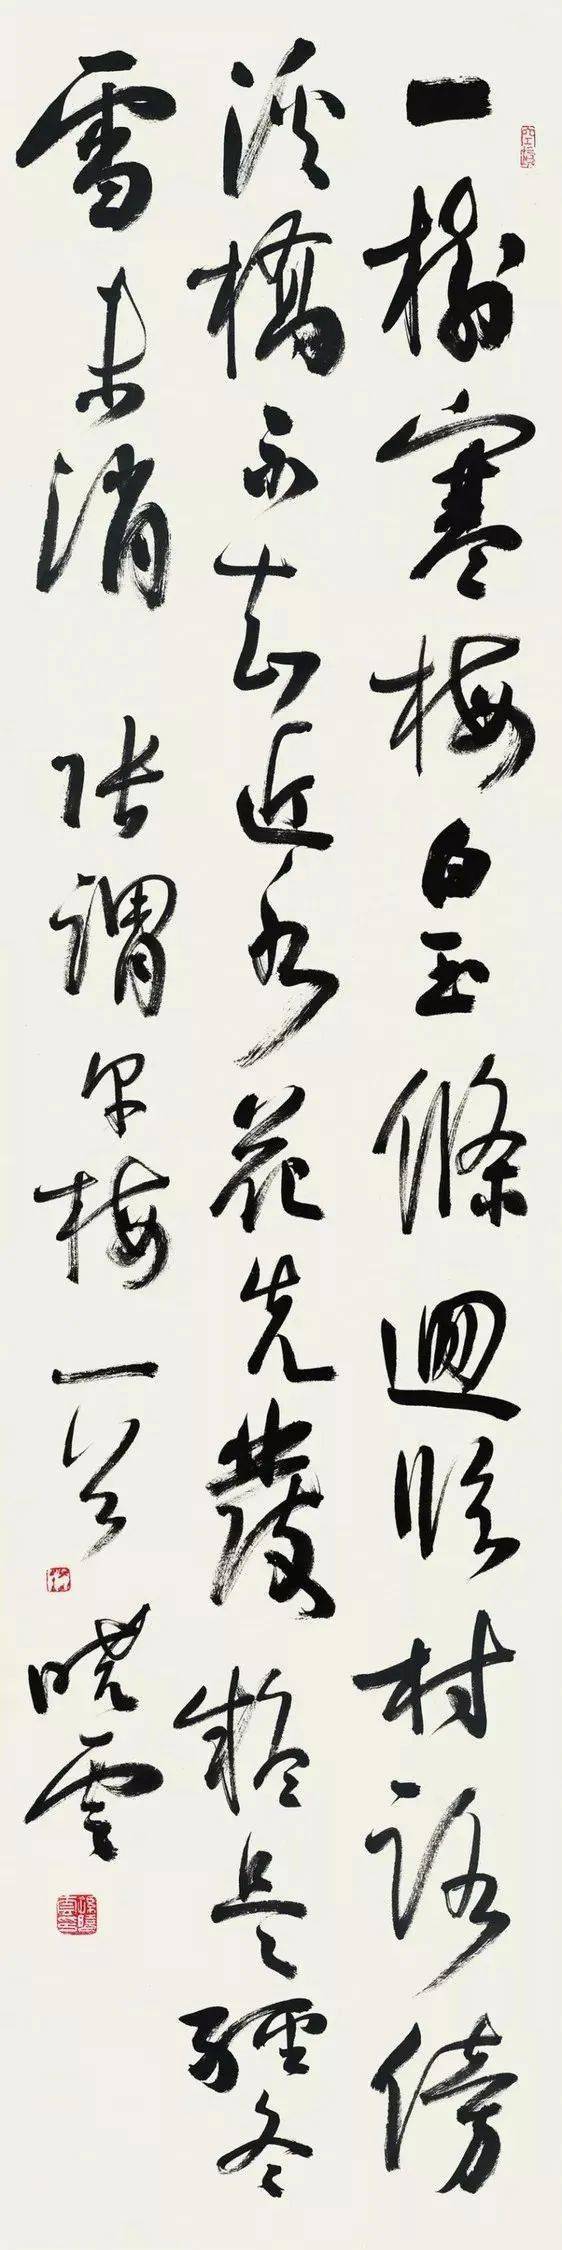 一树寒梅白玉條迥临村路傍
溪橋不知近水花先發疑是經冬
雪未消 张謂早梅一首 晓雲